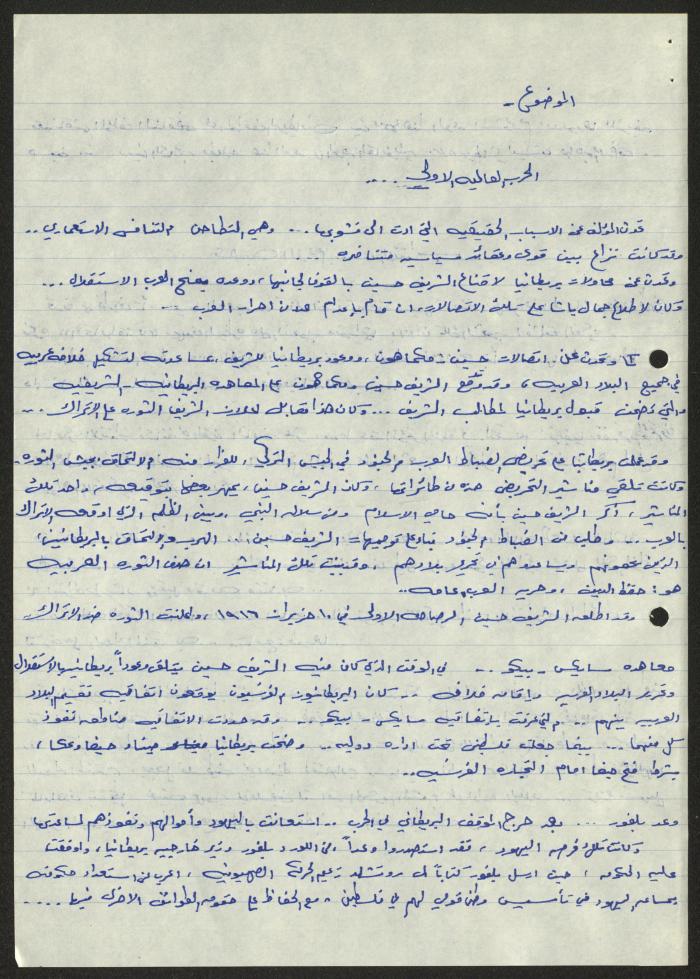 الموضوع -
الحرب العالمية الاولى ....
تحدث المؤلف عن الاسباب الحقيقية التي ادت الى نشوبها... وهي التطاحن والتنافس الاستعماري ..
وقد كانت نزاع بين قوى وعقائد سياسية متنافرة
وتحدث عن محاولات بريطانيا لاقناع الشريف حسين بالوقوف لجانبها، ووعده بمنح العرب الاستقلال ...
وكان لاطلاع جمال باشا على تلك الاتصالات، ان قام باعدام عدد من احرار العرب ..
I وتحدث عن اتصالات حسين - مكماهون، ووعود بريطانيا للشريف بمساعدته لتشكيل خلافة عربية
في جميع البلاد العربية، وقد وقع الشريف حسين ومكماهون على المعاهدة البريطانية - الشريفية
والتي تضمنت قبول بريطانيا لمطالب الشريف ... وكان هذا مقابل اعلان الشريف الثورة على الاتراك ...
وقد عملت بريطانيا على تحريض الضباط العرب والجنود في الجيش التركي للفرار منه والالتحاق بجيش الثورة
وكانت تلقي مناشير التحريض هذه من طائراتها، وكان الشريف حسين يمهر بعضها بتوقيعه، واحد تلك
المناشير، ذكر الشريف حسين بأنه حامي الاسلام ومن سلالة النبي، وبين الظلم الذي اوقعه الاتراك
بالعرب .. وطلب من الضباط والجنود بناء على توجيهات الشريف حسين ... الهرب والالتحاق بالبريطانيين،
الذين سيساعدهم في تحرير بلادهم، وقد بينت تلك المناشير ان هدف الثورة العربية
هو: حفظ الدين، وحرية العرب عامة ..
وقد اطلق الشريف حسين الرصاصة الاولى في ١٠ حزيران ١٩١٦، واعلنت الثورة ضد الاتراك
معاهدة سايكس - بيكو .. في الوقت الذي كان فيه الشريف حسين يتلقى وعداً بريطانيا بالاستقلال
وتحرير البلاد العربية واقامة خلافة .. كان البريطانيون والفرنسيون يوقعون اتفاقية تقسيم البلاد
العربية بينهم ... والتي عرفت باتفاقية سايكس - بيكو .. وقد حددت الاتفاقية مناطق نفوذ
كل منهما ... بينما جعلت فلسطين تحت ادارة دولية .. ومنحت بريطانيا ميناء حيفا وعكا،
بشرط فتح حيفا امام التجارة الفرنسية ..
وعد بلفور ... بعد حرج الموقف البريطاني في الحرب .. استعانت باليهود وأموالهم ونفوذهم لمساعدتها
وكانت تلك فرصة اليهود، فقد استصدروا وعداً من اللورد بلفور وزير خارجية بريطانيا، وافقت
عليه الحكومة، حيث ارسل بلفور كتاباً الى روتشلد زعيم الحركة الصهيونية، اعرب عن استعداد حكومته
بمساعدة اليهود في تأسيس وطن قومي لهم في فلسطين، مع الحفاظ على حقوق الطوائف الاخرى فيها ....